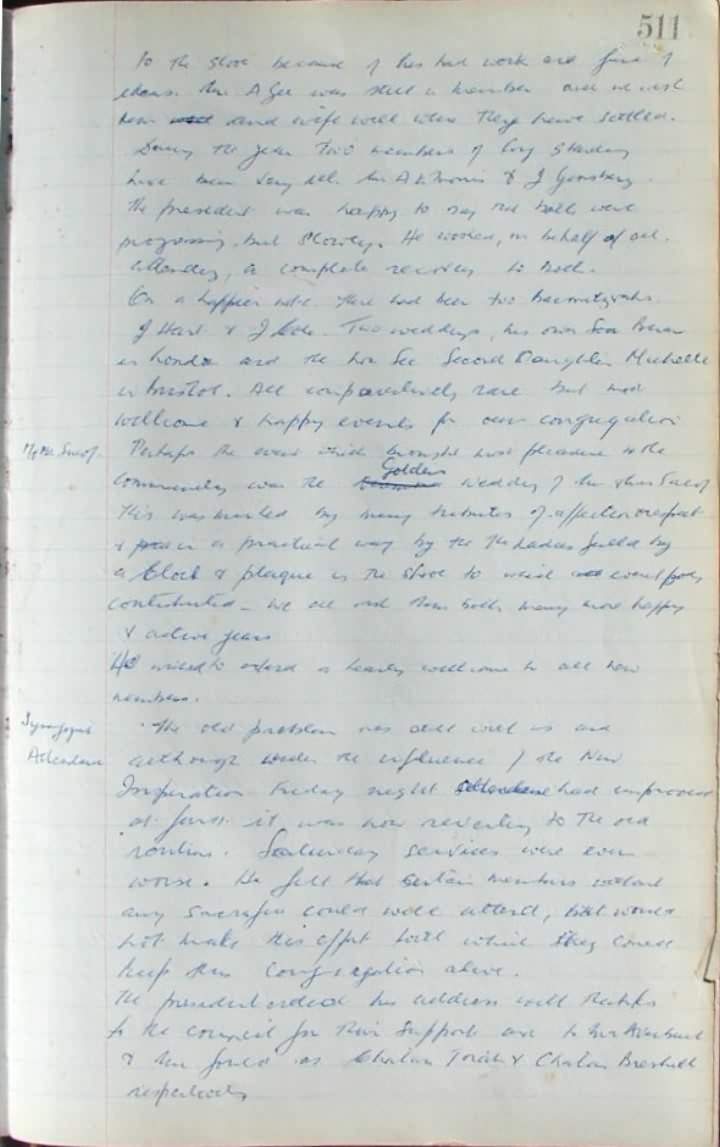 511
to the Shool because of his hard work and fund of
ideas. Mr A Gee was still a member and we wish
him and wife well where they have settled.
During the year two members of long standing
have been very ill. Mr A L Morris & J Ginsberg.
The president was happy to say that both were
progressing, but slowly. He wished, on behalf of all
attending, a complete recovery to both.
On a happier note. There had been two Barmitzvahs.
J Hart & J Cole. Two weddings, his own Son
in London and the Hon Sec Second Daughter Michelle
in Bristol. All comparatively rare but most
wellcome & happy events for our congregation
Perhaps the event which brought most pleasure to the
community was the Golden wedding of Mr & Mrs
This was marked by many tributes of affection & respect
& in a practical way by the Ladies Guild by
a Clock & plaque in the Shool to which
contributed - we all wish them both many more happy
& active years
He wished to extend a hearty wellcome to all new
members.
Synagogue
Attendance
The old problem was still with us and
although under the influence of the New
Inspiration Friday night attendance had improved
at first it was now reverting to the old
routine. Saturday services were even
worse. He felt that certain members without
any sacrifice could well attend, but would
not make this effort with which they could
keep this Congregation alive.
The president ended his address with thanks
to the council for their support and to Mr
& Mr as Chatan Torah & Chatan Bereshith
respectively